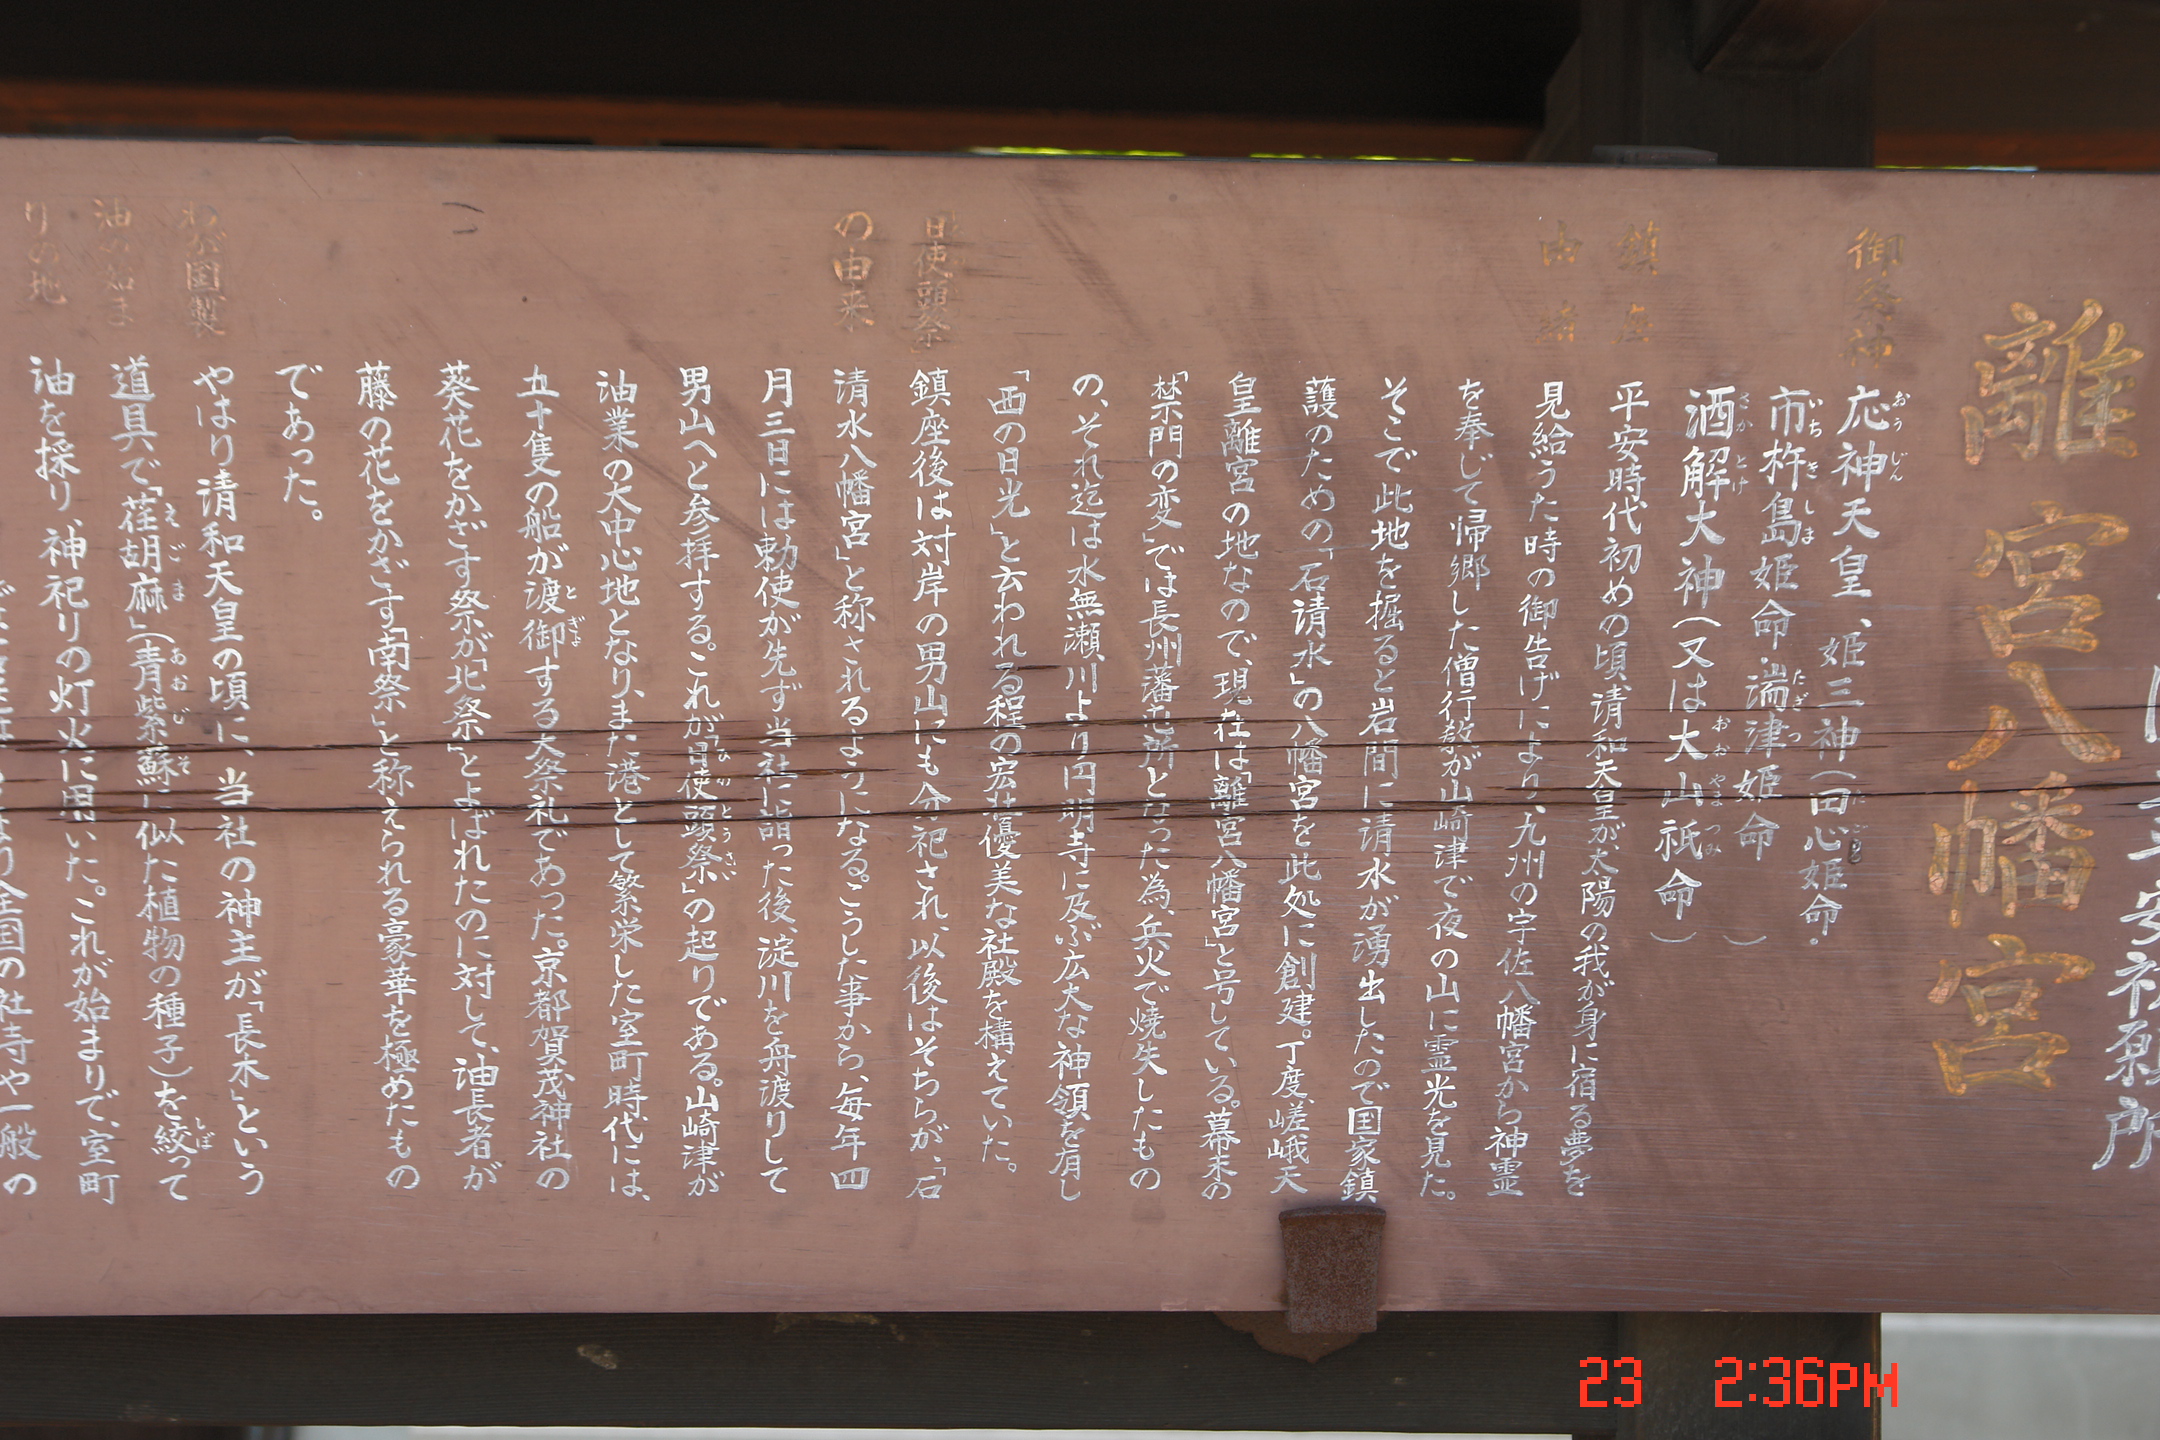 安祈願所
離宮八幡宮
御祭神
応神天皇、姫三神(田心姫命・
市杵島姫命 湍津姫命)
酒解大神(又は大山祇命)
鎮座
由緒
平安時代初めの頃、清和天皇が太陽の我が身に宿る夢を
見給うた時の御告げにより、九州の宇佐八幡宮から神霊
を奉じて帰郷した僧行教が山崎津で夜の山に霊光を見た。
そこで此地を掘ると岩間に清水が湧出したので国家鎮
護のための「石清水」の八幡宮を此処に創建。丁度、嵯峨天
皇離宮の地なので、現在は「離宮八幡宮」と号している。幕末の
「禁門の変」では長州藩屯所となった為、兵火で焼失したもの
の、それ迄は水無瀬川より円明寺に及ぶ広大な神領を有し
「西の日光」と云われる程の宏壮優美な社殿を構えていた。
日使頭祭
の由来
鎮座後は対岸の男山にも分祀され、以後はそちらが、「石
清水八幡宮」と称されるようになる。こうした事から、毎年四
月三日には勅使が先ず当社に詣った後、淀川を舟渡りして
男山へと参拝する。これが「日使頭祭」の起りである。山崎津が
油業の大中心地となり、また港として繁栄した室町時代には、
五十隻の船が渡御する大祭礼であった。京都賀茂神社の
葵花をかざす祭が「北祭」とよばれたのに対して、油長者が
藤の花をかざす「南祭」と称えられる豪華を極めたもの
であった。
わが国製
油の始ま
りの地
やはり清和天皇の頃に、当社の神主が「長木」という
道具で「荏胡麻」(青紫蘇に似た植物の種子)を絞って
油を採り、神祀りの灯火に用いた。これが始まりで、室町
より全国の社寺や一般の
23 2:36PM